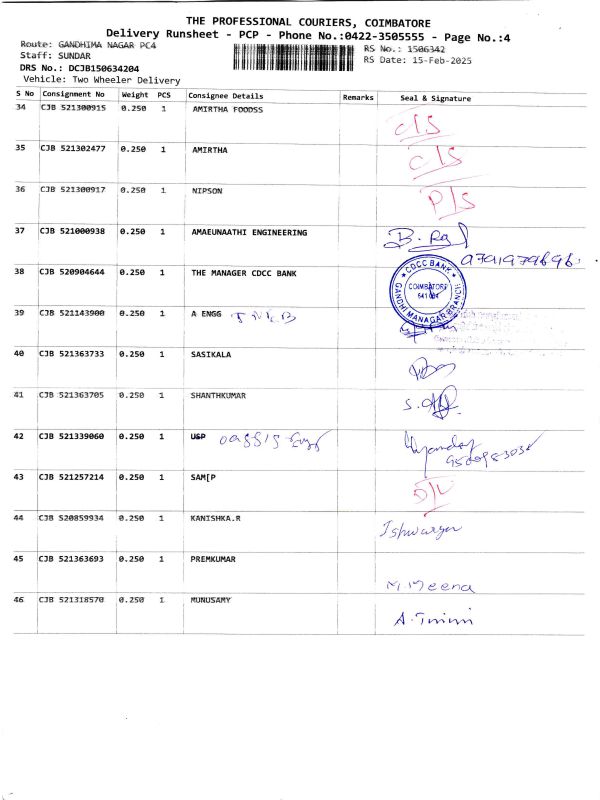 THE PROFESSIONAL COURIERS, COIMBATORE
Delivery Runsheet - PCP - Phone No.:0422-3505555 - Page No.:4
Route: GANDHIMA NAGAR PC4
RS No.: 1506342
Staff: SUNDAR
RS Date: 15-Feb-2025
DRS No.: DCJB150634204
Vehicle: Two Wheeler Delivery
S No Consignment No Weight PCS Consignee Details Remarks Seal & Signature
34 CJB 521300915 0.250 1 AMIRTHA FOODSS C/S
35 CJB 521302477 0.250 1 AMIRTHA C/S
36 CJB 521300917 0.250 1 NIPSON P/S
37 CJB 521000938 0.250 1 AMAEUNAATHI ENGINEERING B. Raj
9791979696
38 CJB 520904644 0.250 1 THE MANAGER CDCC BANK
CDCC BANK
COIMBATORE
641 004
GANDHI MANAGAR BRANCH
39 CJB 521143900 0.250 1 A ENGG TNEB
40 CJB 521363733 0.250 1 SASIKALA
41 CJB 521363705 0.250 1 SHANTHKUMAR
42 CJB 521339060 0.250 1 USP
43 CJB 521257214 0.250 1 SAM[P D/L
44 CJB 520859934 0.250 1 KANISHKA.R Ishwarya
45 CJB 521363693 0.250 1 PREMKUMAR M. Meena
46 CJB 521318570 0.250 1 MUNUSAMY